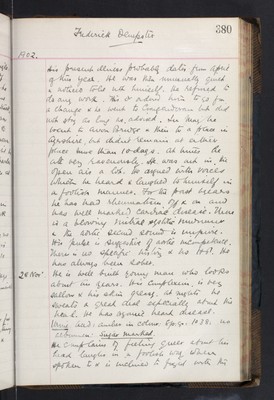 Frederick Dempster
380
1902.
His present illness probably dates from April
of this year. He was then unusually quiet
& noticed to talk with himself. He refused to
do any work. The Dr advised him to go for
a change & he went to Campbeltown but did
not stay as long as advised. In May he
went to Arran Bridge & then to a place in
Ayrshire, but didn't remain at either
place more than 10 days. At times he
ate very ravenously. He was out in the
open air a lot. He argued with voices
which he heard & laughed to himself in
a foolish manner. For the past years
he has had rheumatism, off & on and
has well marked cardiac disease. There
is a blowing mitral systolic murmur
& the aortic second sound is impure.
His pulse is suggestive of aortic incompetence.
There is no specific history & his
has always been sober.
28 Nov.
He is well built young man who looks
about his years. His complexion is very
sallow & his skin greasy. At nights he
sweats a great deal especially about his
head. He has organic heart disease.
Urine acid: amber in colour. Sp. gr. 1028. no
albumen: Sugar marked.
He complains of feeling queer about his
head, laughs in a foolish way when
spoken to & is inclined to fight with his